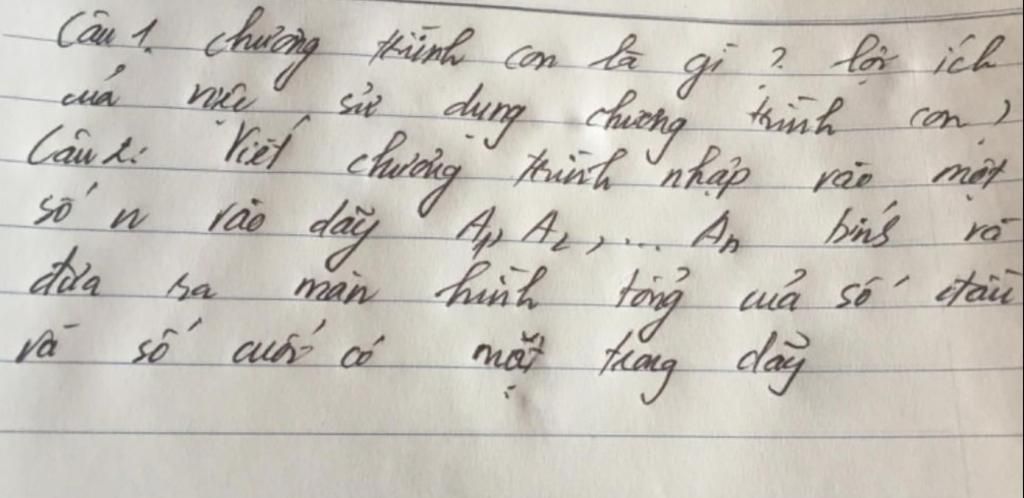 Câu 1. chương trình con là gì? lợi ích
của việc sử dụng chương trình con?
Câu 2: Viết chương trình nhập vào một
số n vào dãy A1, A2, ... An tính và
đưa ra màn hình tổng của số đầu
và số cuối có mặt trong dãy